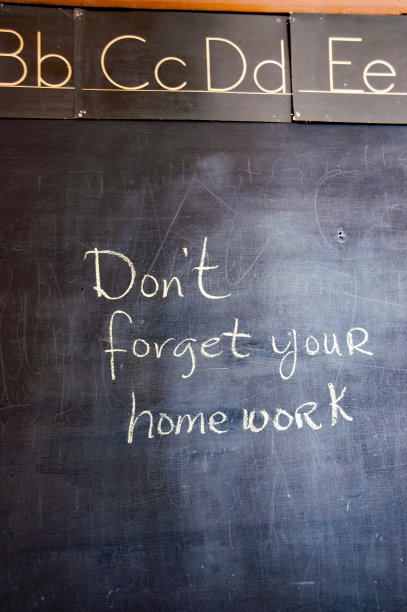 Bb Cc Dd Ee
Don't
forget your
homework